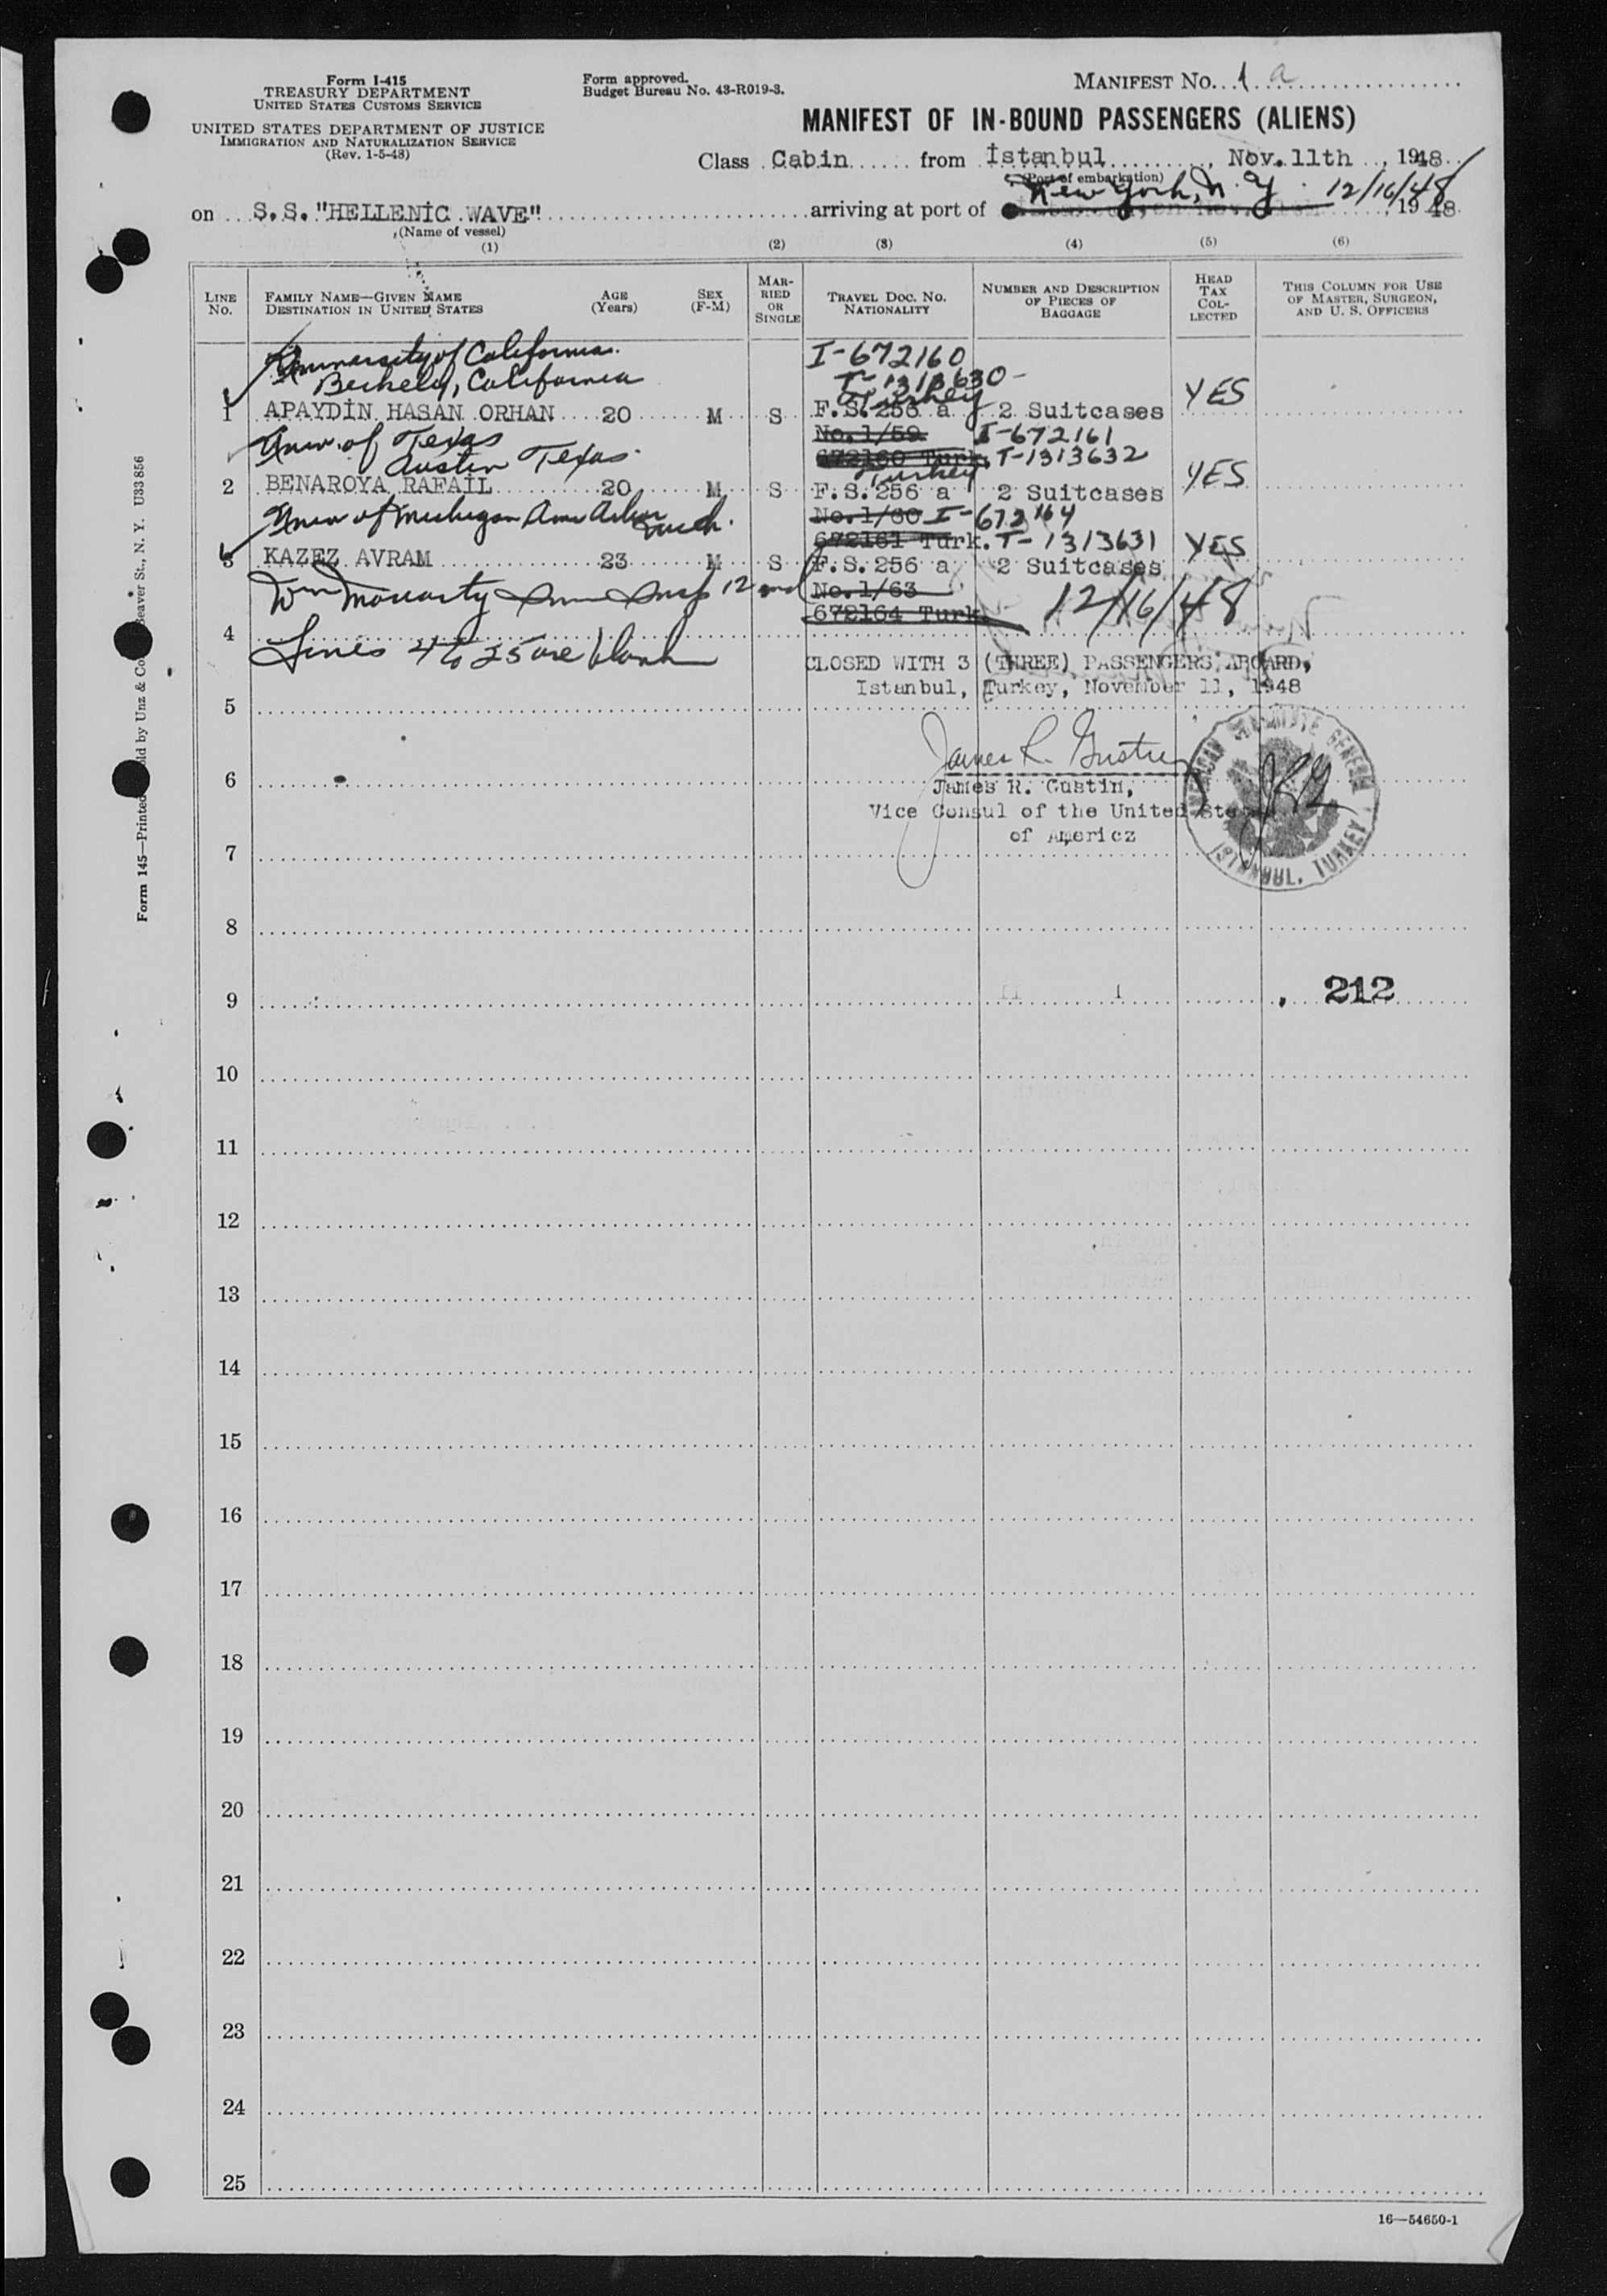 Form I-415
TREASURY DEPARTMENT
UNITED STATES CUSTOMS SERVICE
UNITED STATES DEPARTMENT OF JUSTICE
IMMIGRATION AND NATURALIZATION SERVICE
(Rev. 1-5-48)
Form approved.
Budget Bureau No. 43-R019-3.
MANIFEST NO. 1 a
MANIFEST OF IN-BOUND PASSENGERS (ALIENS)
Class Cabin from İstanbul, Nov. 11th, 1948
(Port of embarkation)
on S.S. "HELLENİC WAVE" arriving at port of New York, N.Y. 12/16/48, 1948
(Name of vessel)
(1) (2) (3) (4) (5) (6)
LINE NO.
FAMILY NAME—GIVEN NAME
DESTINATION IN UNITED STATES
AGE (Years)
SEX (F-M)
MARRIED OR SINGLE
TRAVEL DOC. NO. NATIONALITY
NUMBER AND DESCRIPTION OF PIECES OF BAGGAGE
HEAD TAX COLLECTED
THIS COLUMN FOR USE OF MASTER, SURGEON, AND U. S. OFFICERS
University of California. I-672160
Berkely, California T-1313630-
Turkey
1 APAYDİN HASAN ORHAN 20 M S F.S. 256 a 2 Suitcases YES
Univ. of Texas No. 1/59 I-672161
Austin Texas. 672160 Turk. T-1313632
Turkey
2 BENAROYA RAFAİL 20 M S F.S. 256 a 2 Suitcases YES
Univ of Michigan Ann Arbor Mich. No. 1/60 I-672164
672161 Turk. T-1313631
3 KAZEZ AVRAM 23 M S F.S. 256 a 2 Suitcases YES
Wm Moriarty Imm Insp 12 No. 1/63 12/16/48
672164 Turk.
4 Lines 4 to 25 are blank
CLOSED WITH 3 (THREE) PASSENGERS ABOARD,
Istanbul, Turkey, November 11, 1948
5
James R. Gustin
6
James R. Gustin,
Vice Consul of the United
of Americz
AMERICAN CONSULATE GENERAL
ISTANBUL, TURKEY
7
8
9 212
10
11
12
13
14
15
16
17
18
19
20
21
22
23
24
25
16—54650-1
Form 145—Printed
Sold by Unz & Co
Beaver St., N. Y. U33856